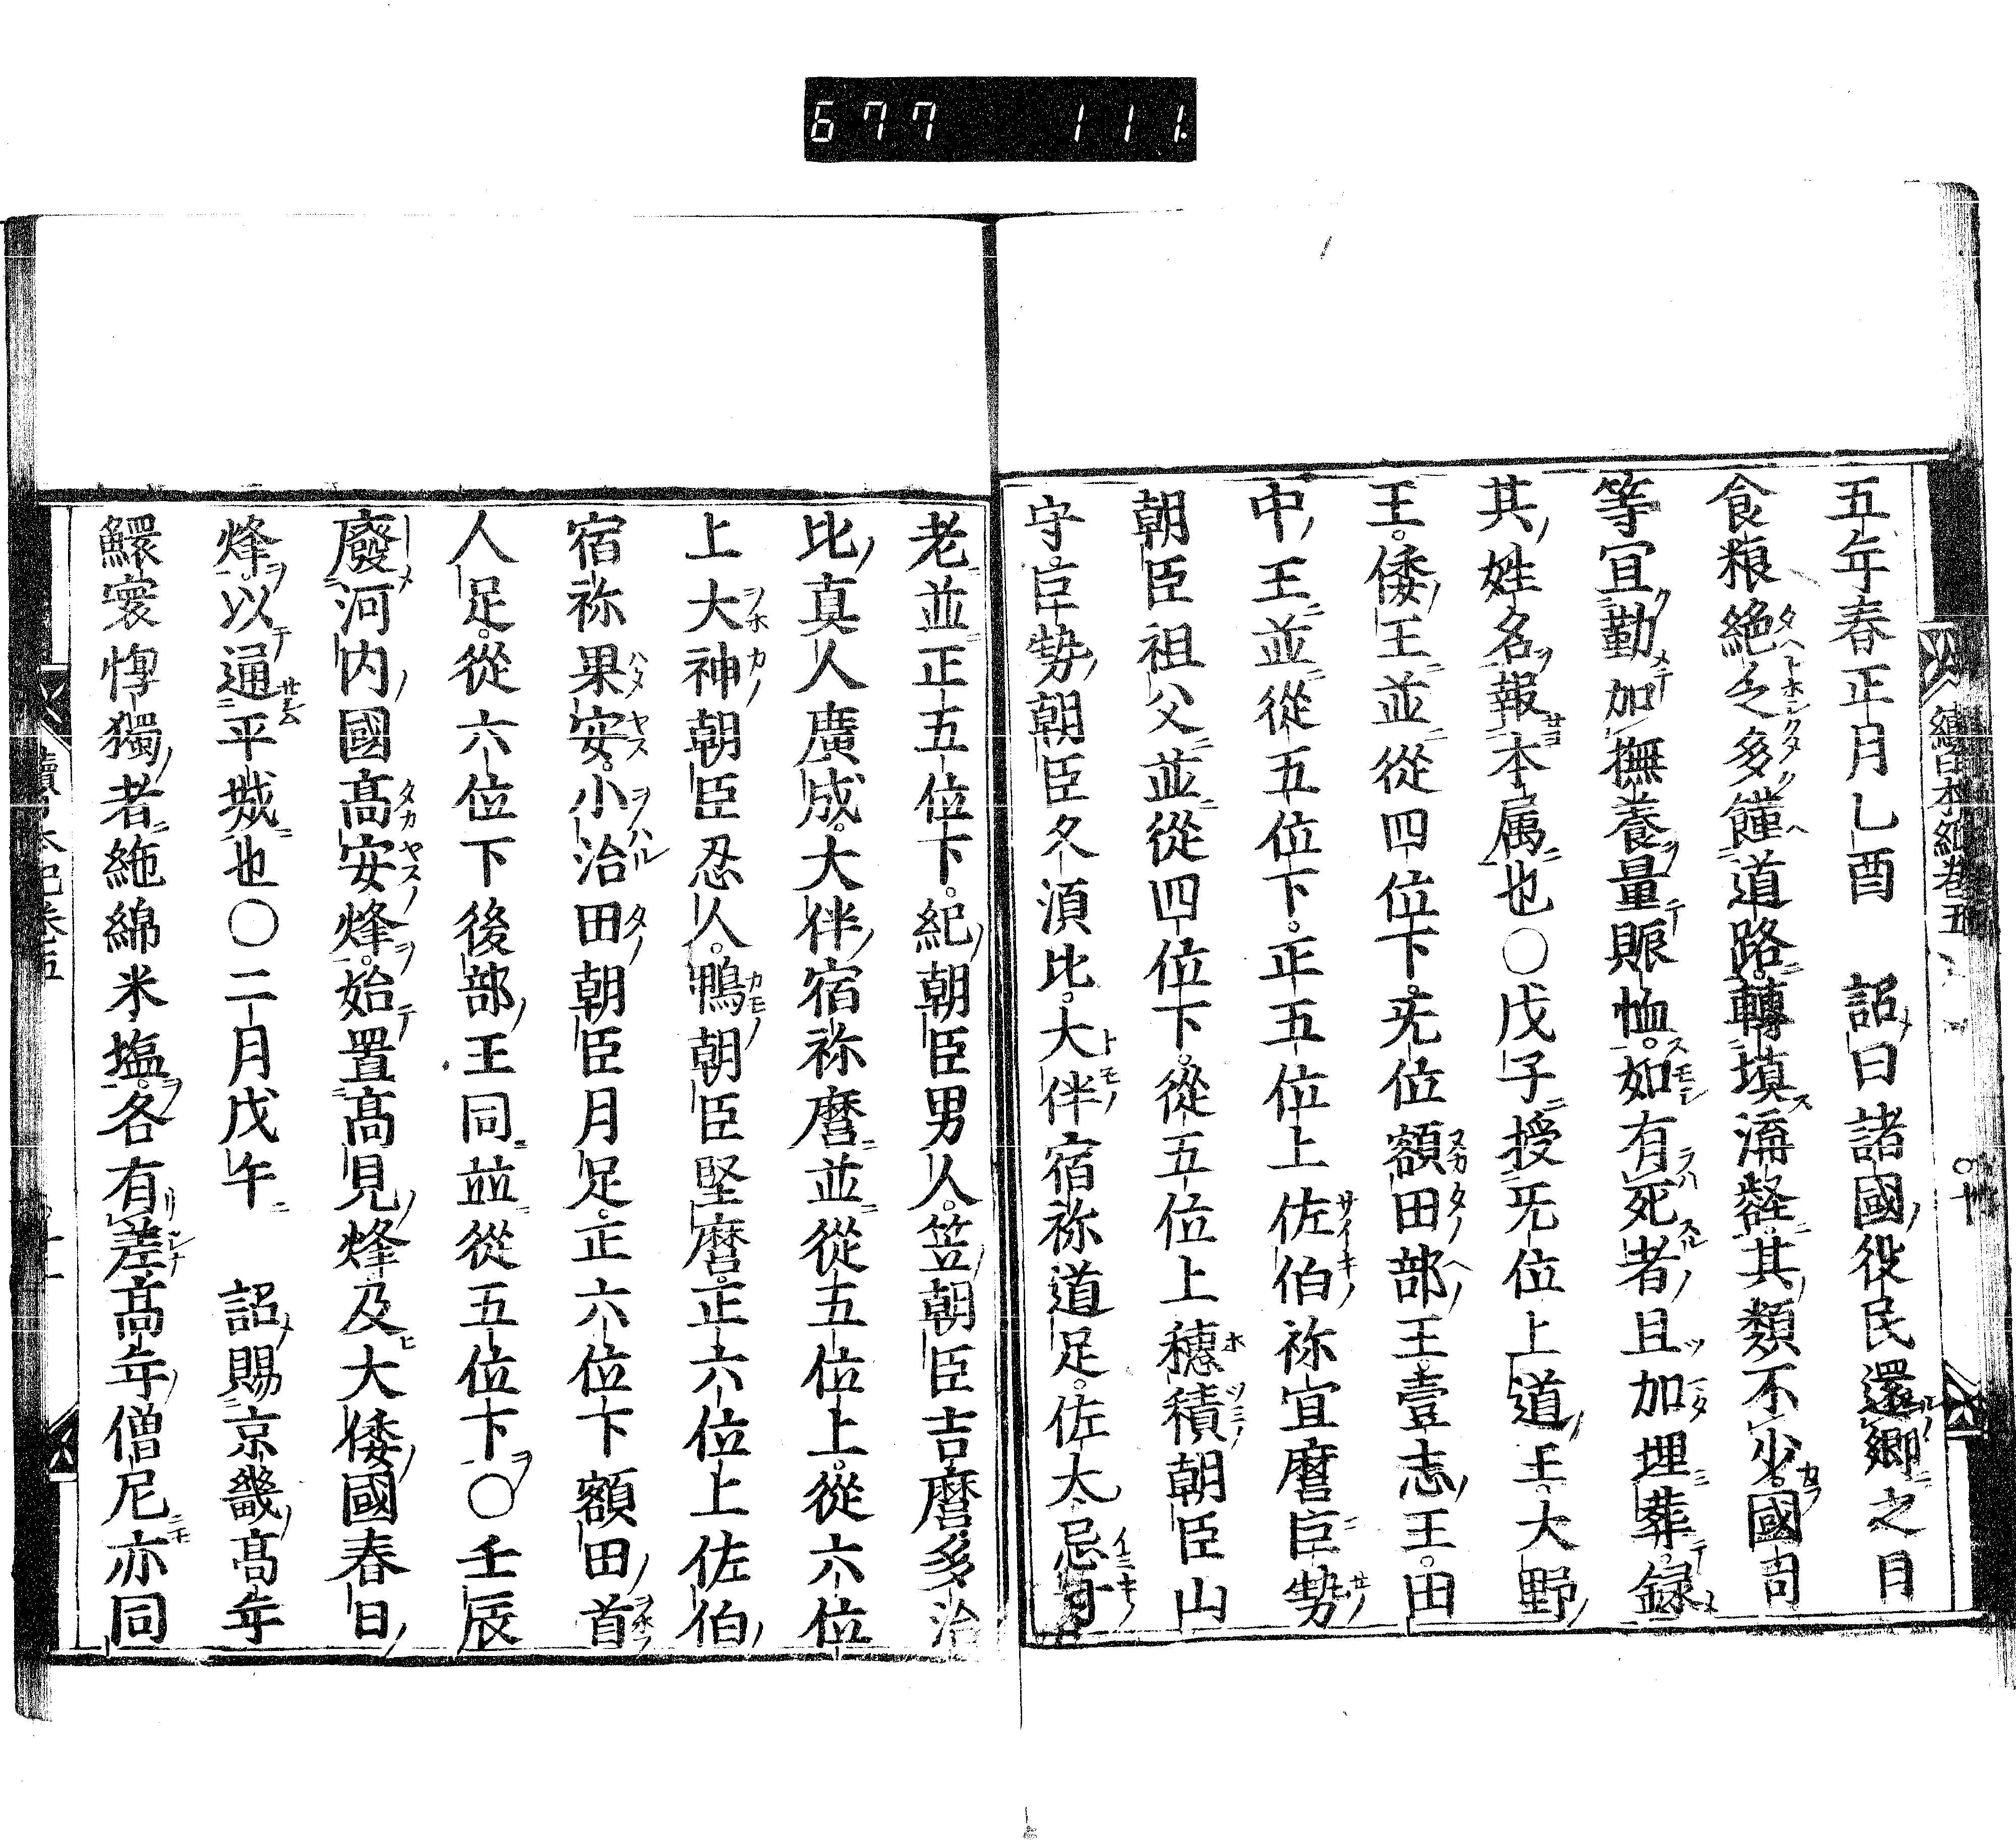 677 111.
續日本紀卷五 〇十
五年春正月乙酉 詔曰諸國役民還鄕之日
食粮絶乏多饉道路轉塡溝壑其類不少國司
等宜勤加撫養量賑恤如有死者且加埋葬錄
其姓名報本属也〇戊子授旡位上道王大野
王倭王並從四位下旡位額田部王壹志王田
中王並從五位下正五位上佐伯祢宜麿巨勢
朝臣祖父並從四位下從五位上穗積朝臣山
守巨勢朝臣久須比大伴宿祢道足佐太忌寸
老並正五位下紀朝臣男人笠朝臣吉麿多治
比真人廣成大伴宿祢麿並從五位上從六位
上大神朝臣忍人鴨朝臣堅麿正六位上佐伯
宿祢果安小治田朝臣月足正六位下額田首
人足從六位下後部王同並從五位下〇壬辰
廢河内國髙安烽始置髙見烽及大倭國春日
烽以通平城也〇二月戊午 詔賜京畿髙年
鰥寡惸獨者絁綿米塩各有差髙年僧尼亦同